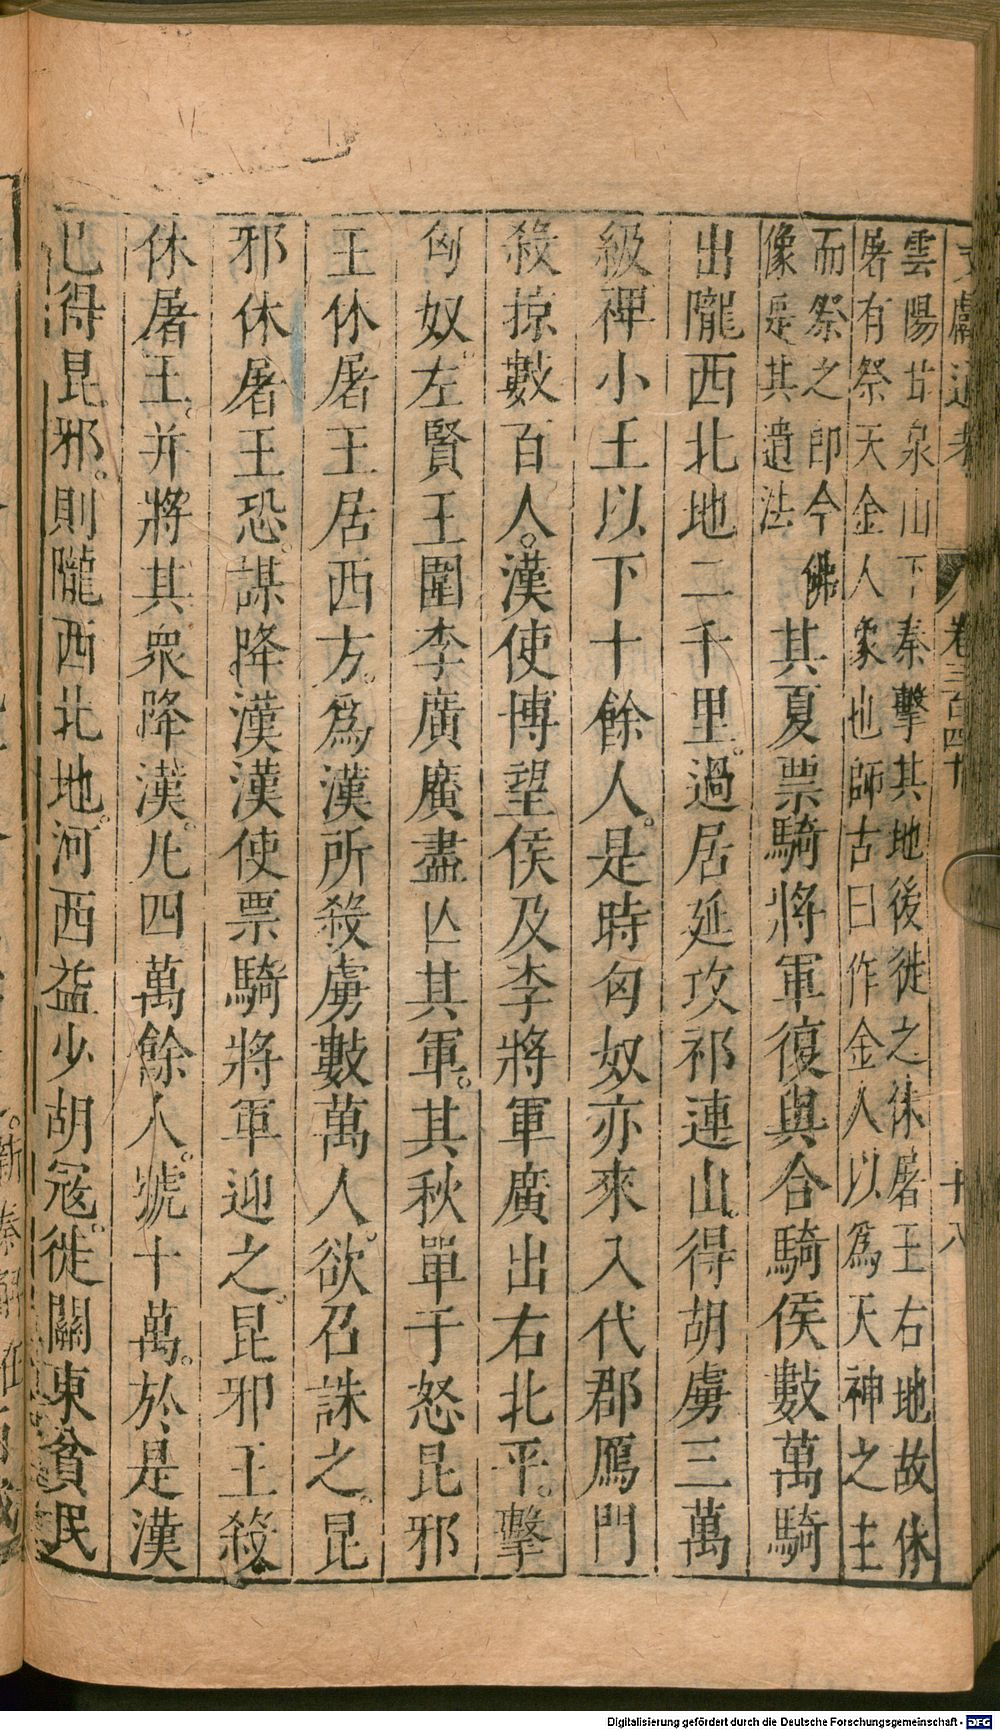 文獻通考 卷三百四十 十八
雲陽甘泉山下秦擊其地後徙之休屠王右地故休
屠有祭天金人象也師古曰作金人以爲天神之主
而祭之即今佛
像是其遺法
其夏票騎將軍復與合騎侯數萬騎
出隴西北地二千里。過居延攻祁連山。得胡虜三萬
級裨小王以下十餘人。是時匈奴亦來入代郡鴈門
殺掠數百人。漢使博望侯及李將軍廣出右北平。擊
匈奴。左賢王圍李廣廣盡亾其軍。其秋單于怒昆邪
王休屠王居西方。爲漢所殺虜數萬人。欲召誅之。昆
邪休屠王恐。謀降漢漢使票騎將軍迎之。昆邪王殺
休屠王。并將其衆降漢。凡四萬餘人。號十萬。於是漢
已得昆邪。則隴西北地。河西益少胡寇。徙關東貧民
Digitalisierung gefördert durch die Deutsche Forschungsgemeinschaft - DFG